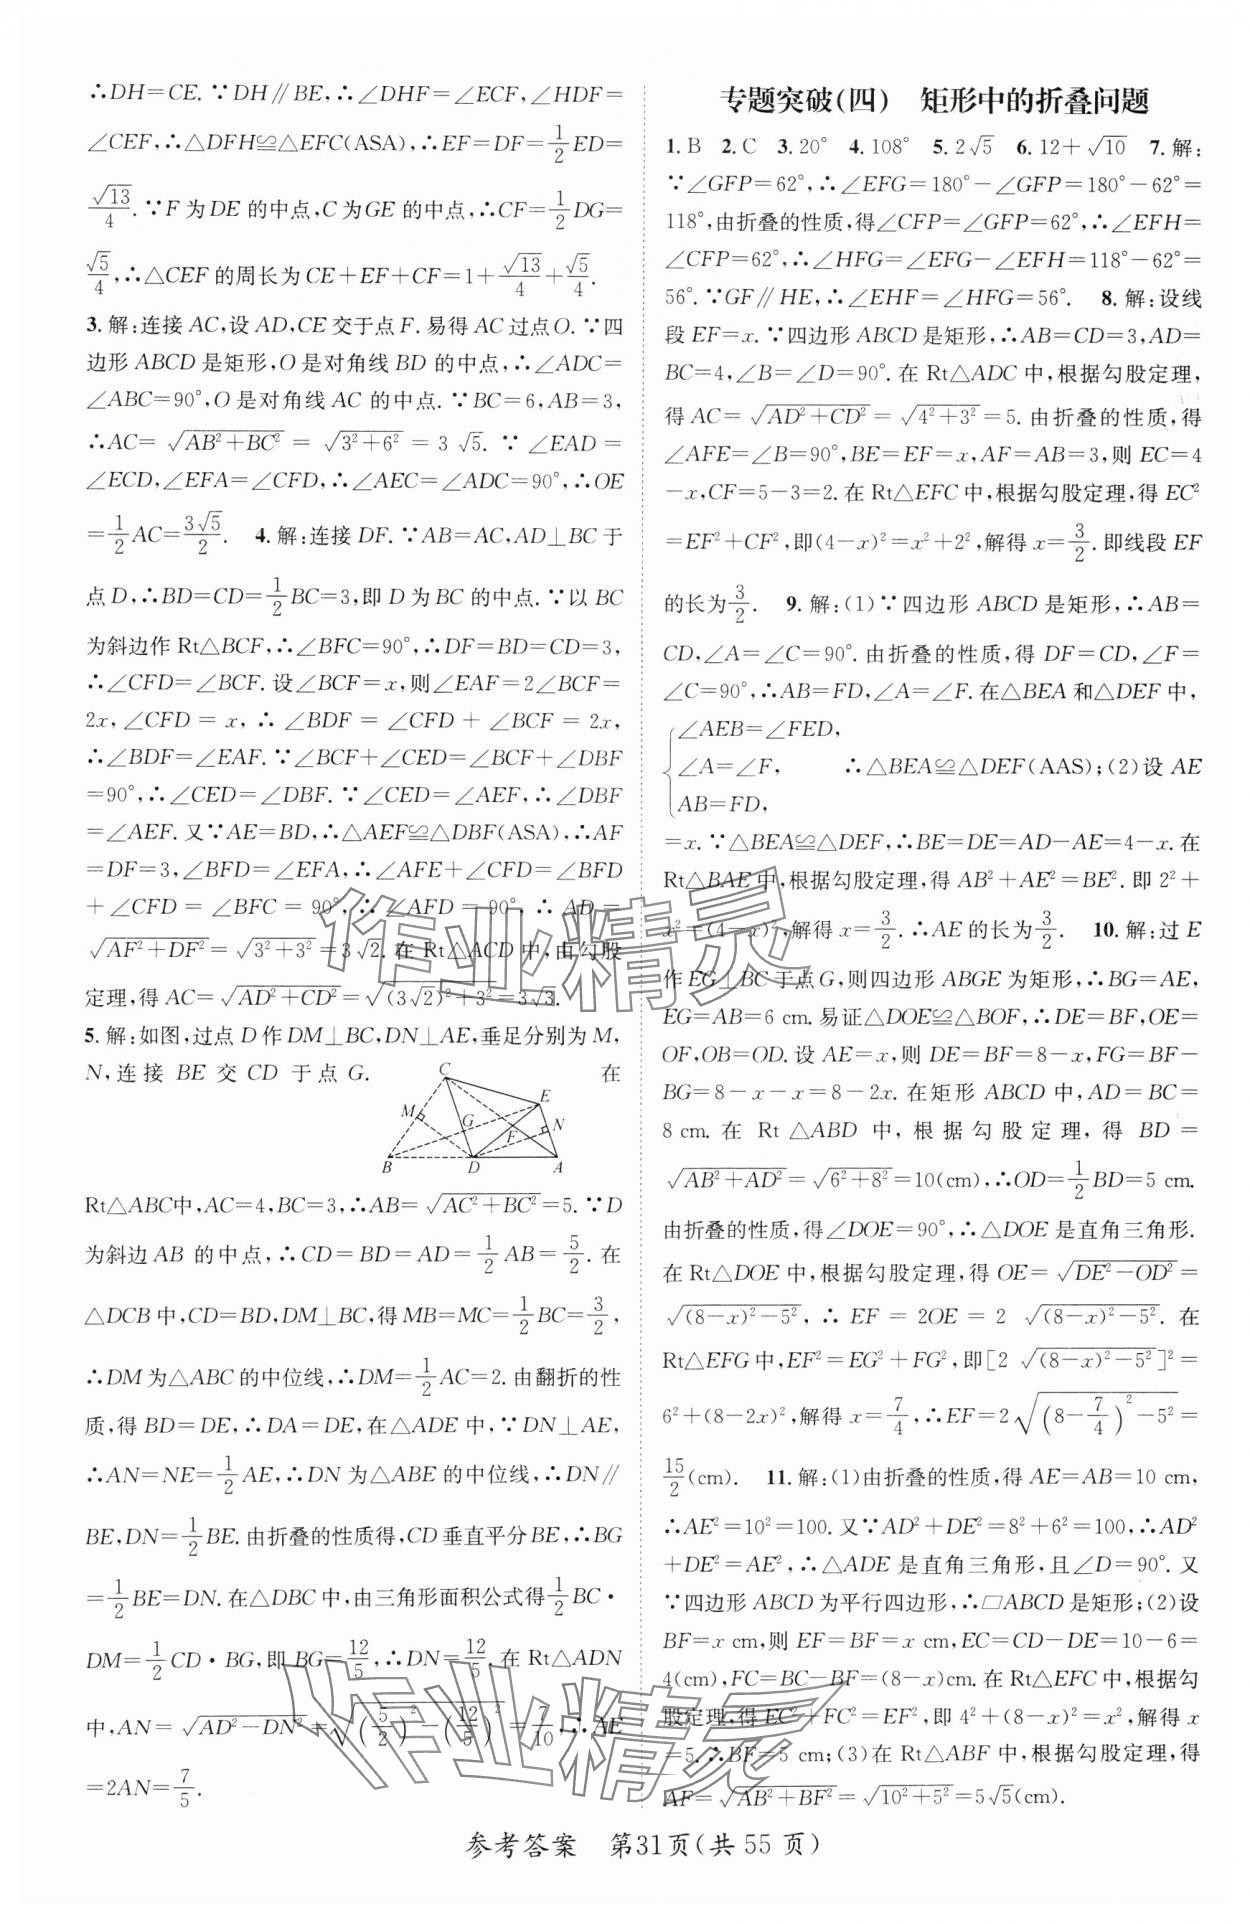 ∴DH=CE.∵DH∥BE,∴∠DHF=∠ECF,∠HDF=
∠CEF,∴△DFH≌△EFC(ASA),∴EF=DF=1/2ED=
√13/4.∵F为DE的中点,C为GE的中点,∴CF=1/2DG=
√5/4,∴△CEF的周长为CE+EF+CF=1+√13/4+√5/4.
3.解:连接AC,设AD,CE交于点F.易得AC过点O.∵四
边形ABCD是矩形,O是对角线BD的中点,∴∠ADC=
∠ABC=90°,O是对角线AC的中点.∵BC=6,AB=3,
∴AC=√(AB²+BC²)=√(3²+6²)=3√5.∵∠EAD=
∠ECD,∠EFA=∠CFD,∴∠AEC=∠ADC=90°,∴OE
=1/2AC=3√5/2. 4.解:连接DF.∵AB=AC,AD⊥BC于
点D,∴BD=CD=1/2BC=3,即D为BC的中点.∵以BC
为斜边作Rt△BCF,∴∠BFC=90°,∴DF=BD=CD=3,
∴∠CFD=∠BCF.设∠BCF=x,则∠EAF=2∠BCF=
2x,∠CFD=x,∴∠BDF=∠CFD+∠BCF=2x,
∴∠BDF=∠EAF.∵∠BCF+∠CED=∠BCF+∠DBF
=90°,∴∠CED=∠DBF.∵∠CED=∠AEF,∴∠DBF
=∠AEF.又∵AE=BD,∴△AEF≌△DBF(ASA),∴AF
=DF=3,∠BFD=∠EFA,∴∠AFE+∠CFD=∠BFD
+∠CFD=∠BFC=90°,∴∠AFD=90°,∴AD=
√(AF²+DF²)=√(3²+3²)=3√2.在Rt△ACD中,由勾股
定理,得AC=√(AD²+CD²)=√((3√2)²+3²)=3√3.
5.解:如图,过点D作DM⊥BC,DN⊥AE,垂足分别为M,
N,连接BE交CD于点G. 在
C
M
E
G
N
F
B
D
A
Rt△ABC中,AC=4,BC=3,∴AB=√(AC²+BC²)=5.∵D
为斜边AB的中点,∴CD=BD=AD=1/2AB=5/2.在
△DCB中,CD=BD,DM⊥BC,得MB=MC=1/2BC=3/2,
∴DM为△ABC的中位线,∴DM=1/2AC=2.由翻折的性
质,得BD=DE,∴DA=DE,在△ADE中,∵DN⊥AE,
∴AN=NE=1/2AE,∴DN为△ABE的中位线,∴DN∥
BE,DN=1/2BE.由折叠的性质得,CD垂直平分BE,∴BG
=1/2BE=DN.在△DBC中,由三角形面积公式得1/2BC·
DM=1/2CD·BG,即BG=12/5,∴DN=12/5.在Rt△ADN
中,AN=√(AD²-DN²)=√((5/2)²-(12/5)²)=7/10,∴AE
=2AN=7/5.
专题突破(四) 矩形中的折叠问题
1.B 2.C 3.20° 4.108° 5.2√5 6.12+√10 7.解:
∵∠GFP=62°,∴∠EFG=180°-∠GFP=180°-62°=
118°,由折叠的性质,得∠CFP=∠GFP=62°,∴∠EFH=
∠CFP=62°,∴∠HFG=∠EFG-∠EFH=118°-62°=
56°.∵GF∥HE,∴∠EHF=∠HFG=56°. 8.解:设线
段EF=x.∵四边形ABCD是矩形,∴AB=CD=3,AD=
BC=4,∠B=∠D=90°.在Rt△ADC中,根据勾股定理,
得AC=√(AD²+CD²)=√(4²+3²)=5.由折叠的性质,得
∠AFE=∠B=90°,BE=EF=x,AF=AB=3,则EC=4
-x,CF=5-3=2.在Rt△EFC中,根据勾股定理,得EC²
=EF²+CF²,即(4-x)²=x²+2²,解得x=3/2.即线段EF
的长为3/2. 9.解:(1)∵四边形ABCD是矩形,∴AB=
CD,∠A=∠C=90°.由折叠的性质,得DF=CD,∠F=
∠C=90°,∴AB=FD,∠A=∠F.在△BEA和△DEF中,
∠AEB=∠FED,
∠A=∠F, ∴△BEA≌△DEF(AAS);(2)设AE
AB=FD,
=x.∵△BEA≌△DEF,∴BE=DE=AD-AE=4-x.在
Rt△BAE中,根据勾股定理,得AB²+AE²=BE².即2²+
x²=(4-x)²,解得x=3/2.∴AE的长为3/2. 10.解:过E
作EG⊥BC于点G,则四边形ABGE为矩形,∴BG=AE,
EG=AB=6 cm.易证△DOE≌△BOF,∴DE=BF,OE=
OF,OB=OD.设AE=x,则DE=BF=8-x,FG=BF-
BG=8-x-x=8-2x.在矩形ABCD中,AD=BC=
8 cm.在Rt△ABD中,根据勾股定理,得BD=
√(AB²+AD²)=√(6²+8²)=10(cm),∴OD=1/2BD=5 cm.
由折叠的性质,得∠DOE=90°,∴△DOE是直角三角形.
在Rt△DOE中,根据勾股定理,得OE=√(DE²-OD²)=
√((8-x)²-5²),∴EF=2OE=2√((8-x)²-5²).在
Rt△EFG中,EF²=EG²+FG²,即[2√((8-x)²-5²)]²=
6²+(8-2x)²,解得x=7/4,∴EF=2√((8-7/4)²-5²)=
15/2(cm). 11.解:(1)由折叠的性质,得AE=AB=10 cm,
∴AE²=10²=100.又∵AD²+DE²=8²+6²=100,∴AD²
+DE²=AE²,∴△ADE是直角三角形,且∠D=90°.又
∵四边形ABCD为平行四边形,∴□ABCD是矩形;(2)设
BF=x cm,则EF=BF=x cm,EC=CD-DE=10-6=
4(cm),FC=BC-BF=(8-x)cm.在Rt△EFC中,根据勾
股定理,得EC²+FC²=EF²,即4²+(8-x)²=x²,解得x
=5.∴BF=5 cm;(3)在Rt△ABF中,根据勾股定理,得
AF=√(AB²+BF²)=√(10²+5²)=5√5(cm).
作业精灵
作业精灵
参考答案 第31页(共55页)